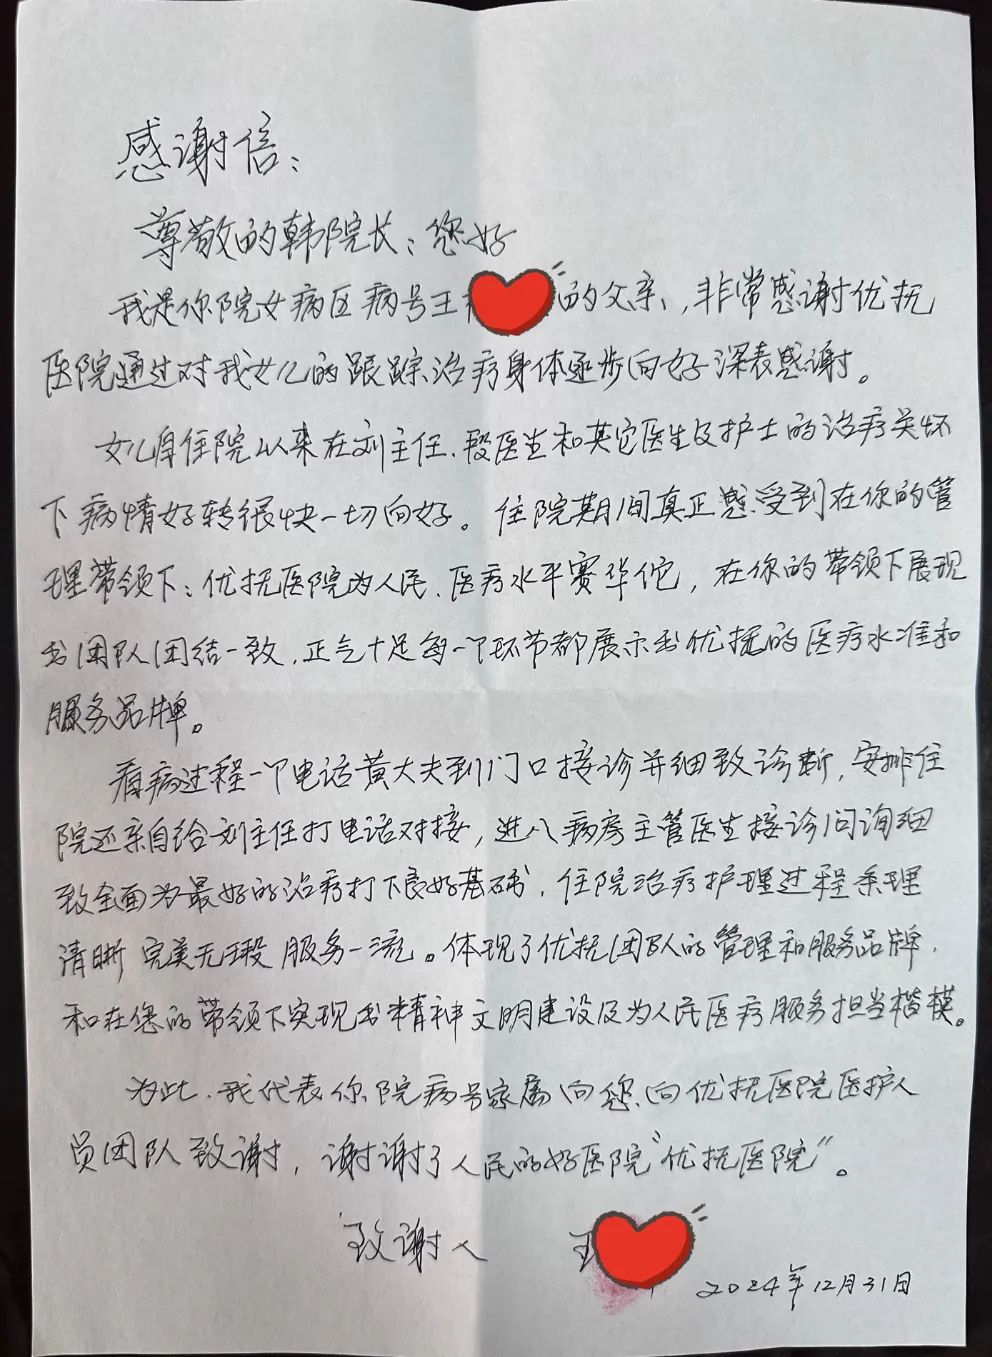 感谢信：
尊敬的韩院长：您好
我是你院女病区病号王 的父亲,非常感谢优抚
医院通过对我女儿的跟踪治疗身体逐步向好深表感谢。
女儿自住院以来在刘主任.段医生和其它医生及护士的治疗关怀
下病情好转很快一切向好。住院期间真正感受到在你的管
理带领下：优抚医院为人民.医疗水平赛华佗，在你的带领下展现
出团队团结一致.正气十足每一个环节都展示出优抚的医疗水准和
服务品牌。
看病过程一个电话黄大夫到门口接诊并细致诊断,安排住
院还亲自给刘主任打电话对接，进入病房主管医生接诊问询细
致全面为最好的治疗打下良好基础.住院治疗护理过程条理
清晰 完美无瑕 服务一流。体现了优抚团队的管理和服务品牌.
和在您的带领下实现出精神文明建设及为人民医疗服务担当楷模。
为此.我代表你院病号家属向您.向优抚医院医护人
员团队致谢，谢谢了人民的好医院“优抚医院”。
致谢人 王
2024年12月31日